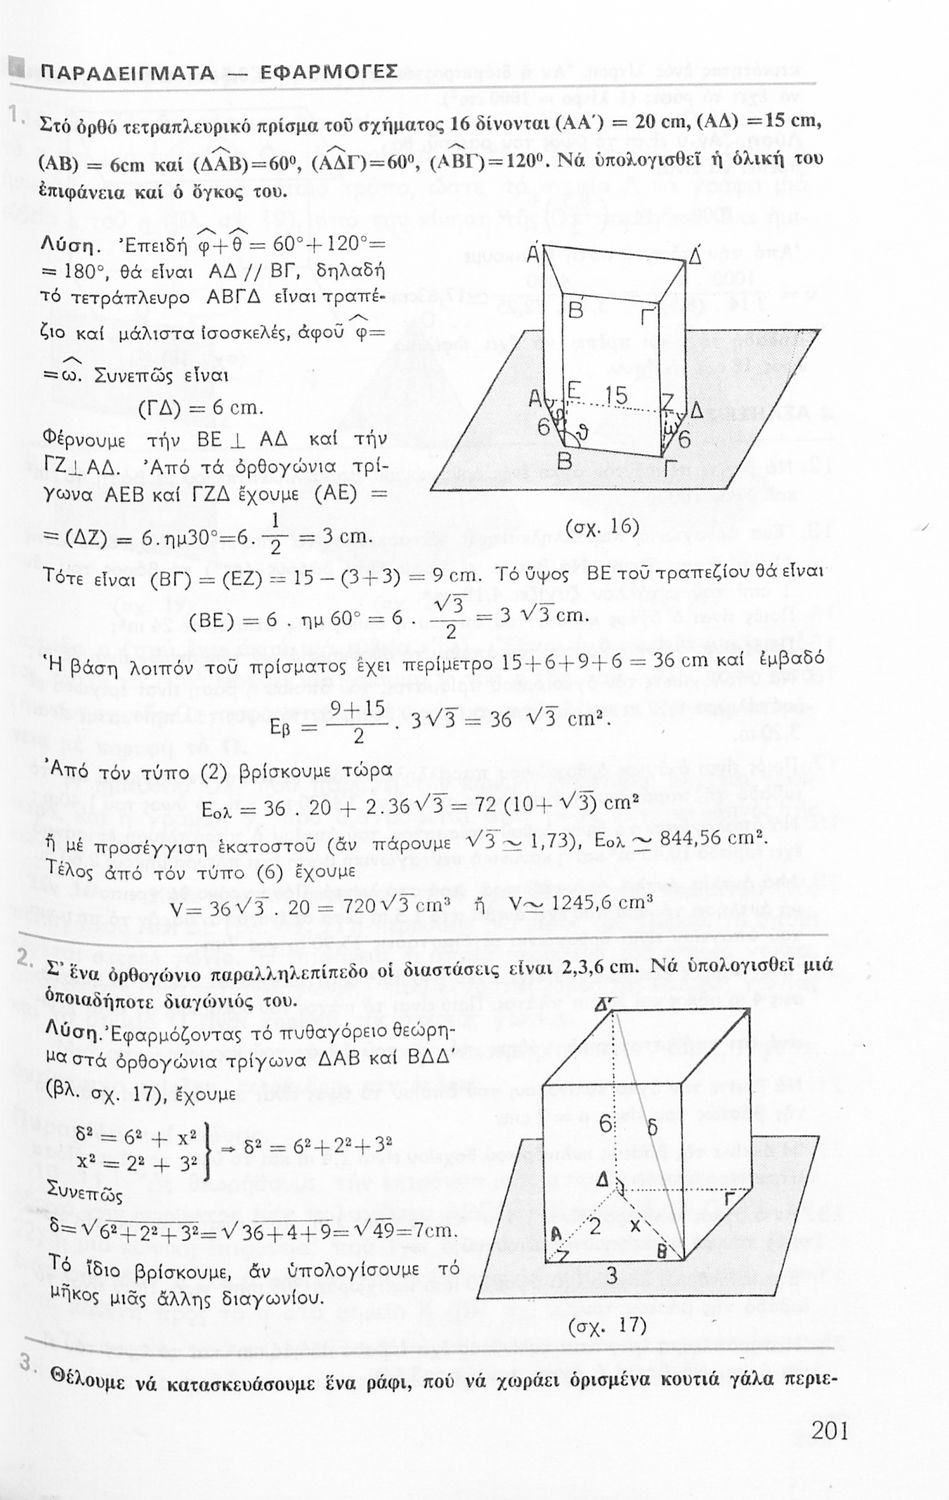 ΠΑΡΑΔΕΙΓΜΑΤΑ — ΕΦΑΡΜΟΓΕΣ
1. Στό ὀρθό τετραπλευρικό πρίσμα τοῦ σχήματος 16 δίνονται (ΑΑ′) = 20 cm, (ΑΔ) =15 cm,
(ΑΒ) = 6cm καί (ΔΑ̂Β)=60⁰, (ΑΔ̂Γ)=60⁰, (ΑΒ̂Γ)=120⁰. Νά ὑπολογισθεῖ ἡ ὁλική του
ἐπιφάνεια καί ὁ ὄγκος του.
Λύση. Ἐπειδή φ̂+θ̂ = 60°+120°=
= 180°, θά εἶναι ΑΔ // ΒΓ, δηλαδή
τό τετράπλευρο ΑΒΓΔ εἶναι τραπέ-
ζιο καί μάλιστα ἰσοσκελές, ἀφοῦ φ̂=
=ω̂. Συνεπῶς εἶναι
(ΓΔ) = 6 cm.
Φέρνουμε τήν ΒΕ ⊥ ΑΔ καί τήν
ΓΖ⊥ΑΔ. Ἀπό τά ὀρθογώνια τρί-
γωνα ΑΕΒ καί ΓΖΔ ἔχουμε (ΑΕ) =
= (ΔΖ) = 6.ημ30°=6. 1/2 = 3 cm.
Α′
Δ′
Β′
Γ′
Α
Ε
15
Ζ
Δ
6
φ
θ
ω
6
Β
Γ
(σχ. 16)
Τότε εἶναι (ΒΓ) = (ΕΖ) = 15 – (3+3) = 9 cm. Τό ὕψος ΒΕ τοῦ τραπεζίου θά εἶναι
(ΒΕ) = 6 . ημ 60° = 6 . √3/2 = 3 √3 cm.
Ἡ βάση λοιπόν τοῦ πρίσματος ἔχει περίμετρο 15+6+9+6 = 36 cm καί ἐμβαδό
Εβ = (9+15)/2 . 3√3 = 36 √3 cm².
Ἀπό τόν τύπο (2) βρίσκουμε τώρα
Εολ = 36 . 20 + 2.36√3 = 72 (10+ √3) cm²
ἤ μέ προσέγγιση ἑκατοστοῦ (ἄν πάρουμε √3 ≃ 1,73), Εολ ≃ 844,56 cm².
Τέλος ἀπό τόν τύπο (6) ἔχουμε
V= 36√3 . 20 = 720√3 cm³ ἤ V≃ 1245,6 cm³
2. Σ' ἕνα ὀρθογώνιο παραλληλεπίπεδο οἱ διαστάσεις εἶναι 2,3,6 cm. Νά ὑπολογισθεῖ μιά
ὁποιαδήποτε διαγώνιός του.
Λύση. Ἐφαρμόζοντας τό πυθαγόρειο θεώρη-
μα στά ὀρθογώνια τρίγωνα ΔΑΒ καί ΒΔΔ′
(βλ. σχ. 17), ἔχουμε
δ² = 6² + x²
x² = 2² + 3² } ⇒ δ² = 6²+2²+3²
Συνεπῶς
δ=√6²+2²+3²=√36+4+9=√49=7cm.
Τό ἴδιο βρίσκουμε, ἄν ὑπολογίσουμε τό
μῆκος μιᾶς ἄλλης διαγωνίου.
Δ′
6
δ
Δ
Γ
Α
2
x
Β
3
(σχ. 17)
3. Θέλουμε νά κατασκευάσουμε ἕνα ράφι, πού νά χωράει ὁρισμένα κουτιά γάλα περιε-
201